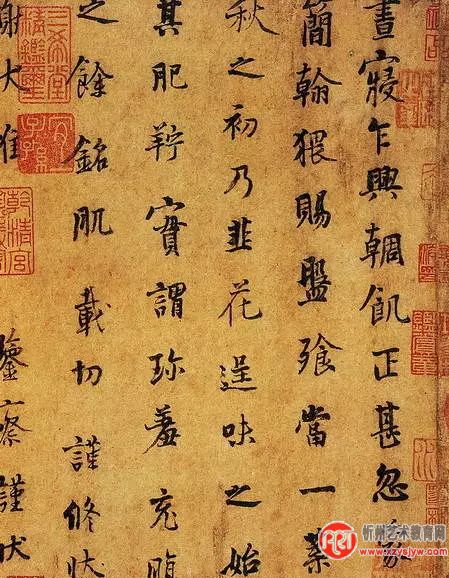 晝寢乍興輖飢正甚忽蒙
簡翰猥賜盤飧當一葉
秋之初乃韭花逞味之始
其肥羜實謂珍羞充腹
之餘銘肌載切謹修狀
謝伏惟 鑒察謹狀
三希堂精鑑璽
宜子孫
忻州艺术教育网
www.xzysjyw.com